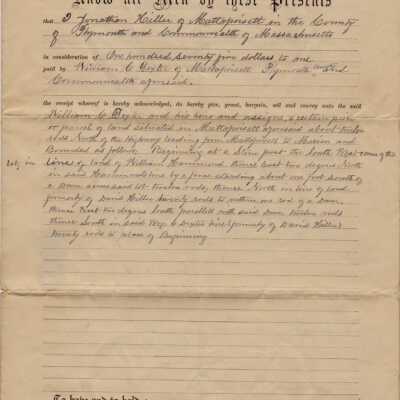 Know all Men by these Presents
that I Jonathan Hiller of Mattapoisett in the County
of Plymouth and Commonwealth of Massachusetts
in consideration of One hundred seventy five dollars to me
paid by William C Dexter of Mattapoisett Plymouth and
Commonwealth aforesaid
the receipt whereof is hereby acknowledged, do hereby give, grant, bargain, sell and convey unto the said
William C Dexter and his heirs and assigns, a certain piece
or parcel of land situated in Mattapoisett aforesaid about twelve
rods North of the highway leading from Mattapoisett to Marion and
Bounded as follows. Beginning at a stone post the South West corner of this
lot, in line of land of William Hammond thence West two degrees North
in said Hammonds line by a fence standing about one foot south of
a Dam across said lot twelve rods, thence North in line of land
formerly of David Hiller twenty rods to within one rod of a Dam
thence East two degrees South parallel with said Dam twelve rods
thence South in said Wm C Dexters line (formerly of David Hiller)
twenty rods to place of Beginning
To have and to hold